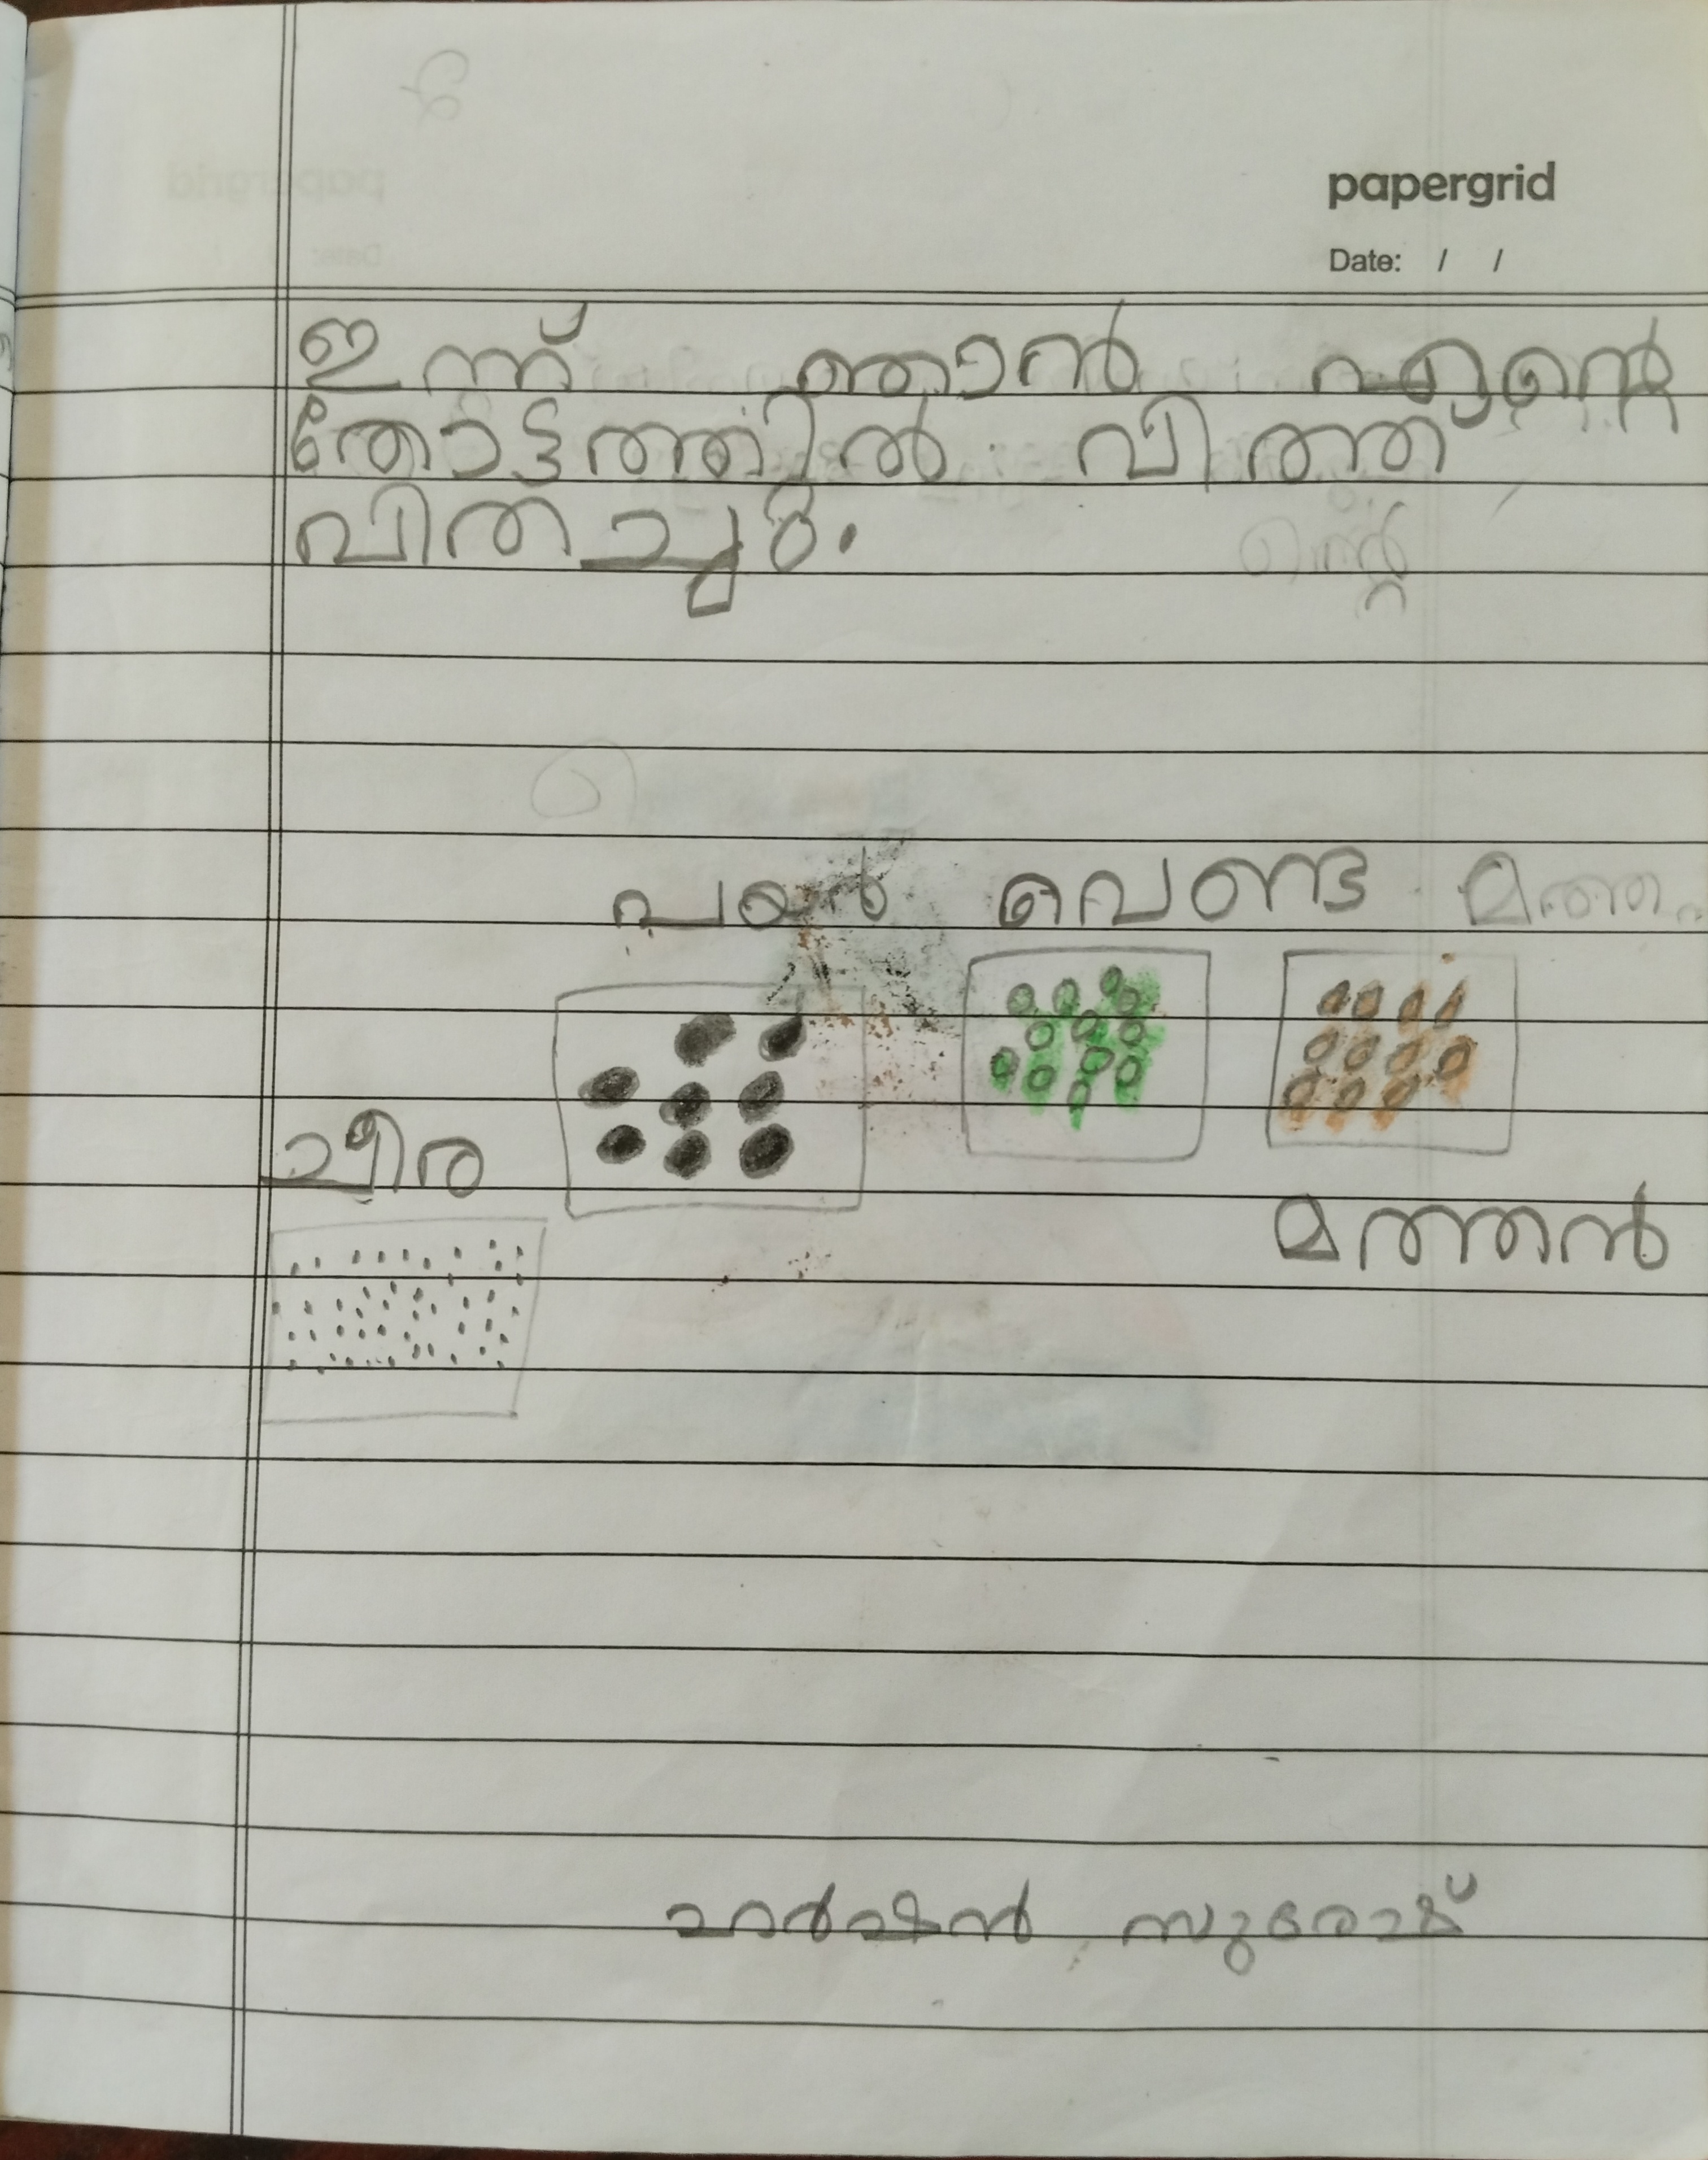 papergrid
Date: / /
ഇന്ന് ഞാൻ എന്റെ
തോട്ടത്തിൽ വിത്ത്
വിതച്ചു.
പയർ വെണ്ട മത്ത
ചീര
മത്തൻ
ഹർഷൻ സുരോജ്